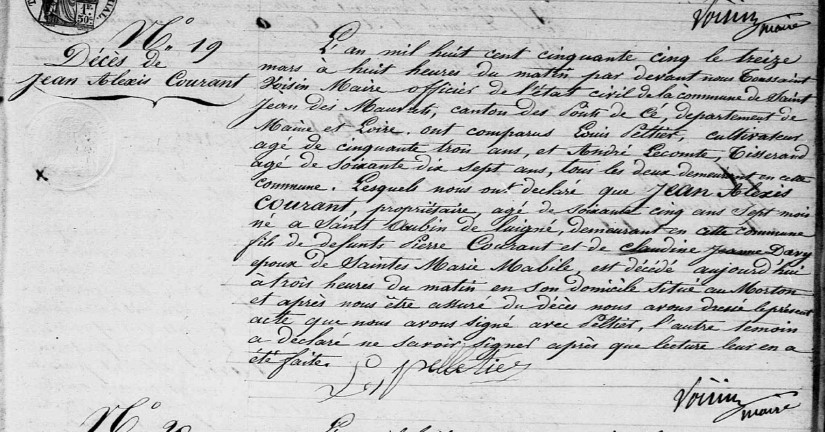 Voisin
maire
N.o 19
Décès de
Jean Alexis Courant
L'an mil huit cent cinquante cinq le treize
mars à huit heures du matin par devant nous Toussaint
Voisin Maire officier de l'état civil de la commune de Saint
Jean des Mauvrets, canton des Ponts de Cé, département de
Maine et Loire. ont comparus Louis Peltier, cultivateur
agé de cinquante trois ans, et André Lecomte, Tisserand
agé de soixante dix sept ans, tous les deux demeurant en cette
commune. Lesquels nous ont declaré que Jean Alexis
Courant, propriétaire, agé de soixante cinq ans sept mois
né a Saint Aubin de Luigné, demeurant en cette commune
fils de defunts Pierre Courant et de claudine Jeanne Davy
epoux de Saintes Marie Mabile, est décédé aujourd'hui
à trois heures du matin en son domicile situé au Morton
et après nous être assuré du décès nous avons dressé le présent
acte que nous avons signé avec Peltier, l'autre temoin
a déclaré ne savoir signer après que lecture leur en a
été faite.
L. pelletier
Voisin
maire
N.o 20